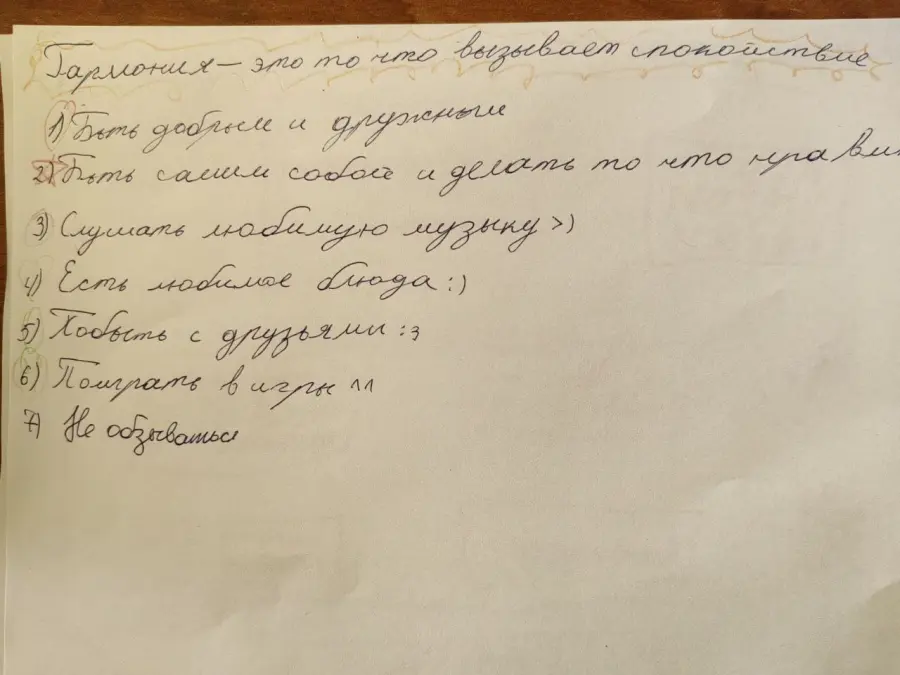 Гармония — это то что вызывает спокойствие
1) Быть добрым и дружным
2) Быть самим собой и делать то что нрави
3) Слушать любимую музыку >)
4) Есть любимое блюда :)
5) Побыть с друзьями :3
6) Поиграть в игры ^^
7) Не обзываться